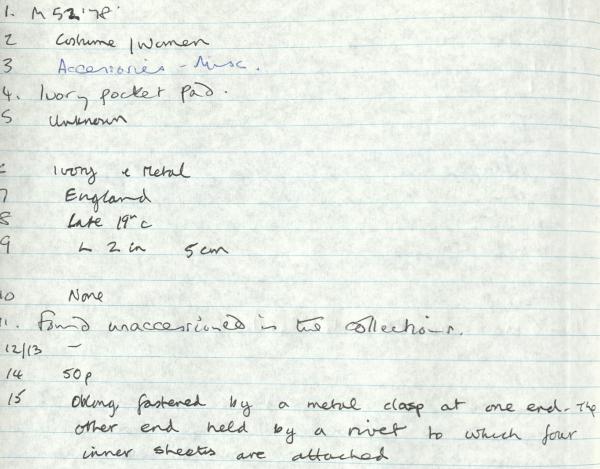 1. M 52 '78'
2 Costume / Women
3 Accessories - Misc.
4. Ivory pocket pad.
5 Unknown
6 Ivory & Metal
7 England
8 Late 19th c
9 L 2 in 5cm
10 None
11. Found unaccessioned in the collections.
12/13 -
14 50p
15 Oblong, fastened by a metal clasp at one end - The
other end held by a rivet to which four
inner sheets are attached